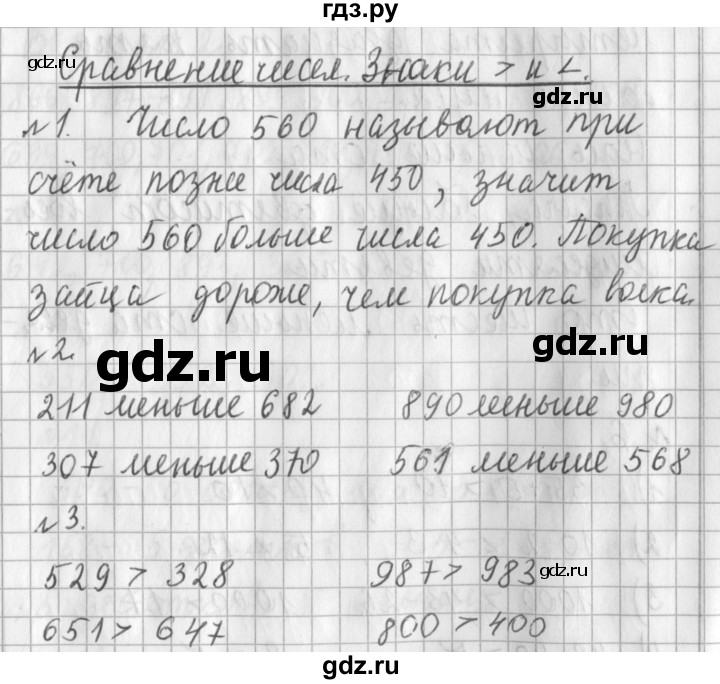 гдз.ру
gdz.ru
Сравнение чисел. Знаки > и <.
gdz.ru
№1. Число 560 называют при
счёте позже числа 450, значит
число 560 больше числа 450. Покупка
зайца дороже, чем покупка волка.
№2. gdz.ru gdz.ru
211 меньше 682 890 меньше 980
307 меньше 370 561 меньше 568
№3.
529 > 328 987 > 983 gdz.ru
651 > 647 800 > 400
gdz.ru
gdz.ru